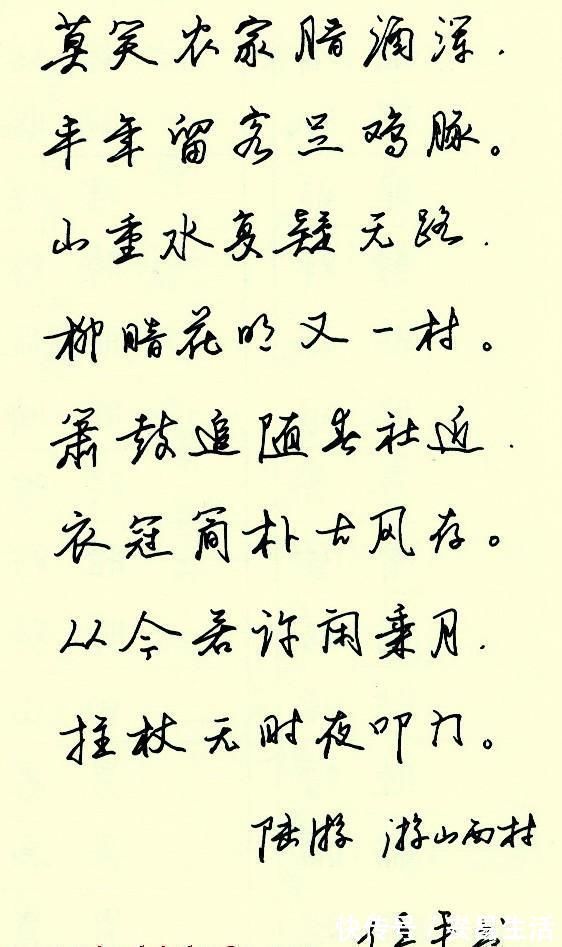 莫笑农家腊酒浑.
丰年留客足鸡豚。
山重水复疑无路.
柳暗花明又一村。
箫鼓追随春社近.
衣冠简朴古风存。
从今若许闲乘月.
拄杖无时夜叩门。
陆游 游山西村
平书
快传号 / 生活